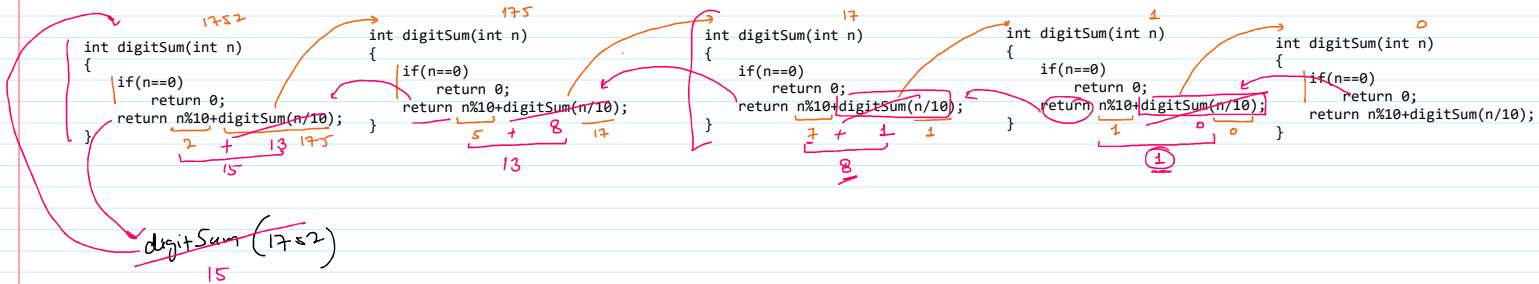 1752
int digitSum(int n)
{
if(n==0)
return 0;
return n%10+digitSum(n/10);
}
2 + 13 175
15
175
int digitSum(int n)
{
if(n==0)
return 0;
return n%10+digitSum(n/10);
}
5 + 8 17
13
17
int digitSum(int n)
{
if(n==0)
return 0;
return n%10+digitSum(n/10);
}
7 + 1 1
8
1
int digitSum(int n)
{
if(n==0)
return 0;
return n%10+digitSum(n/10);
}
1 0 0
1
0
int digitSum(int n)
{
if(n==0)
return 0;
return n%10+digitSum(n/10);
}
digitSum(1752)
15